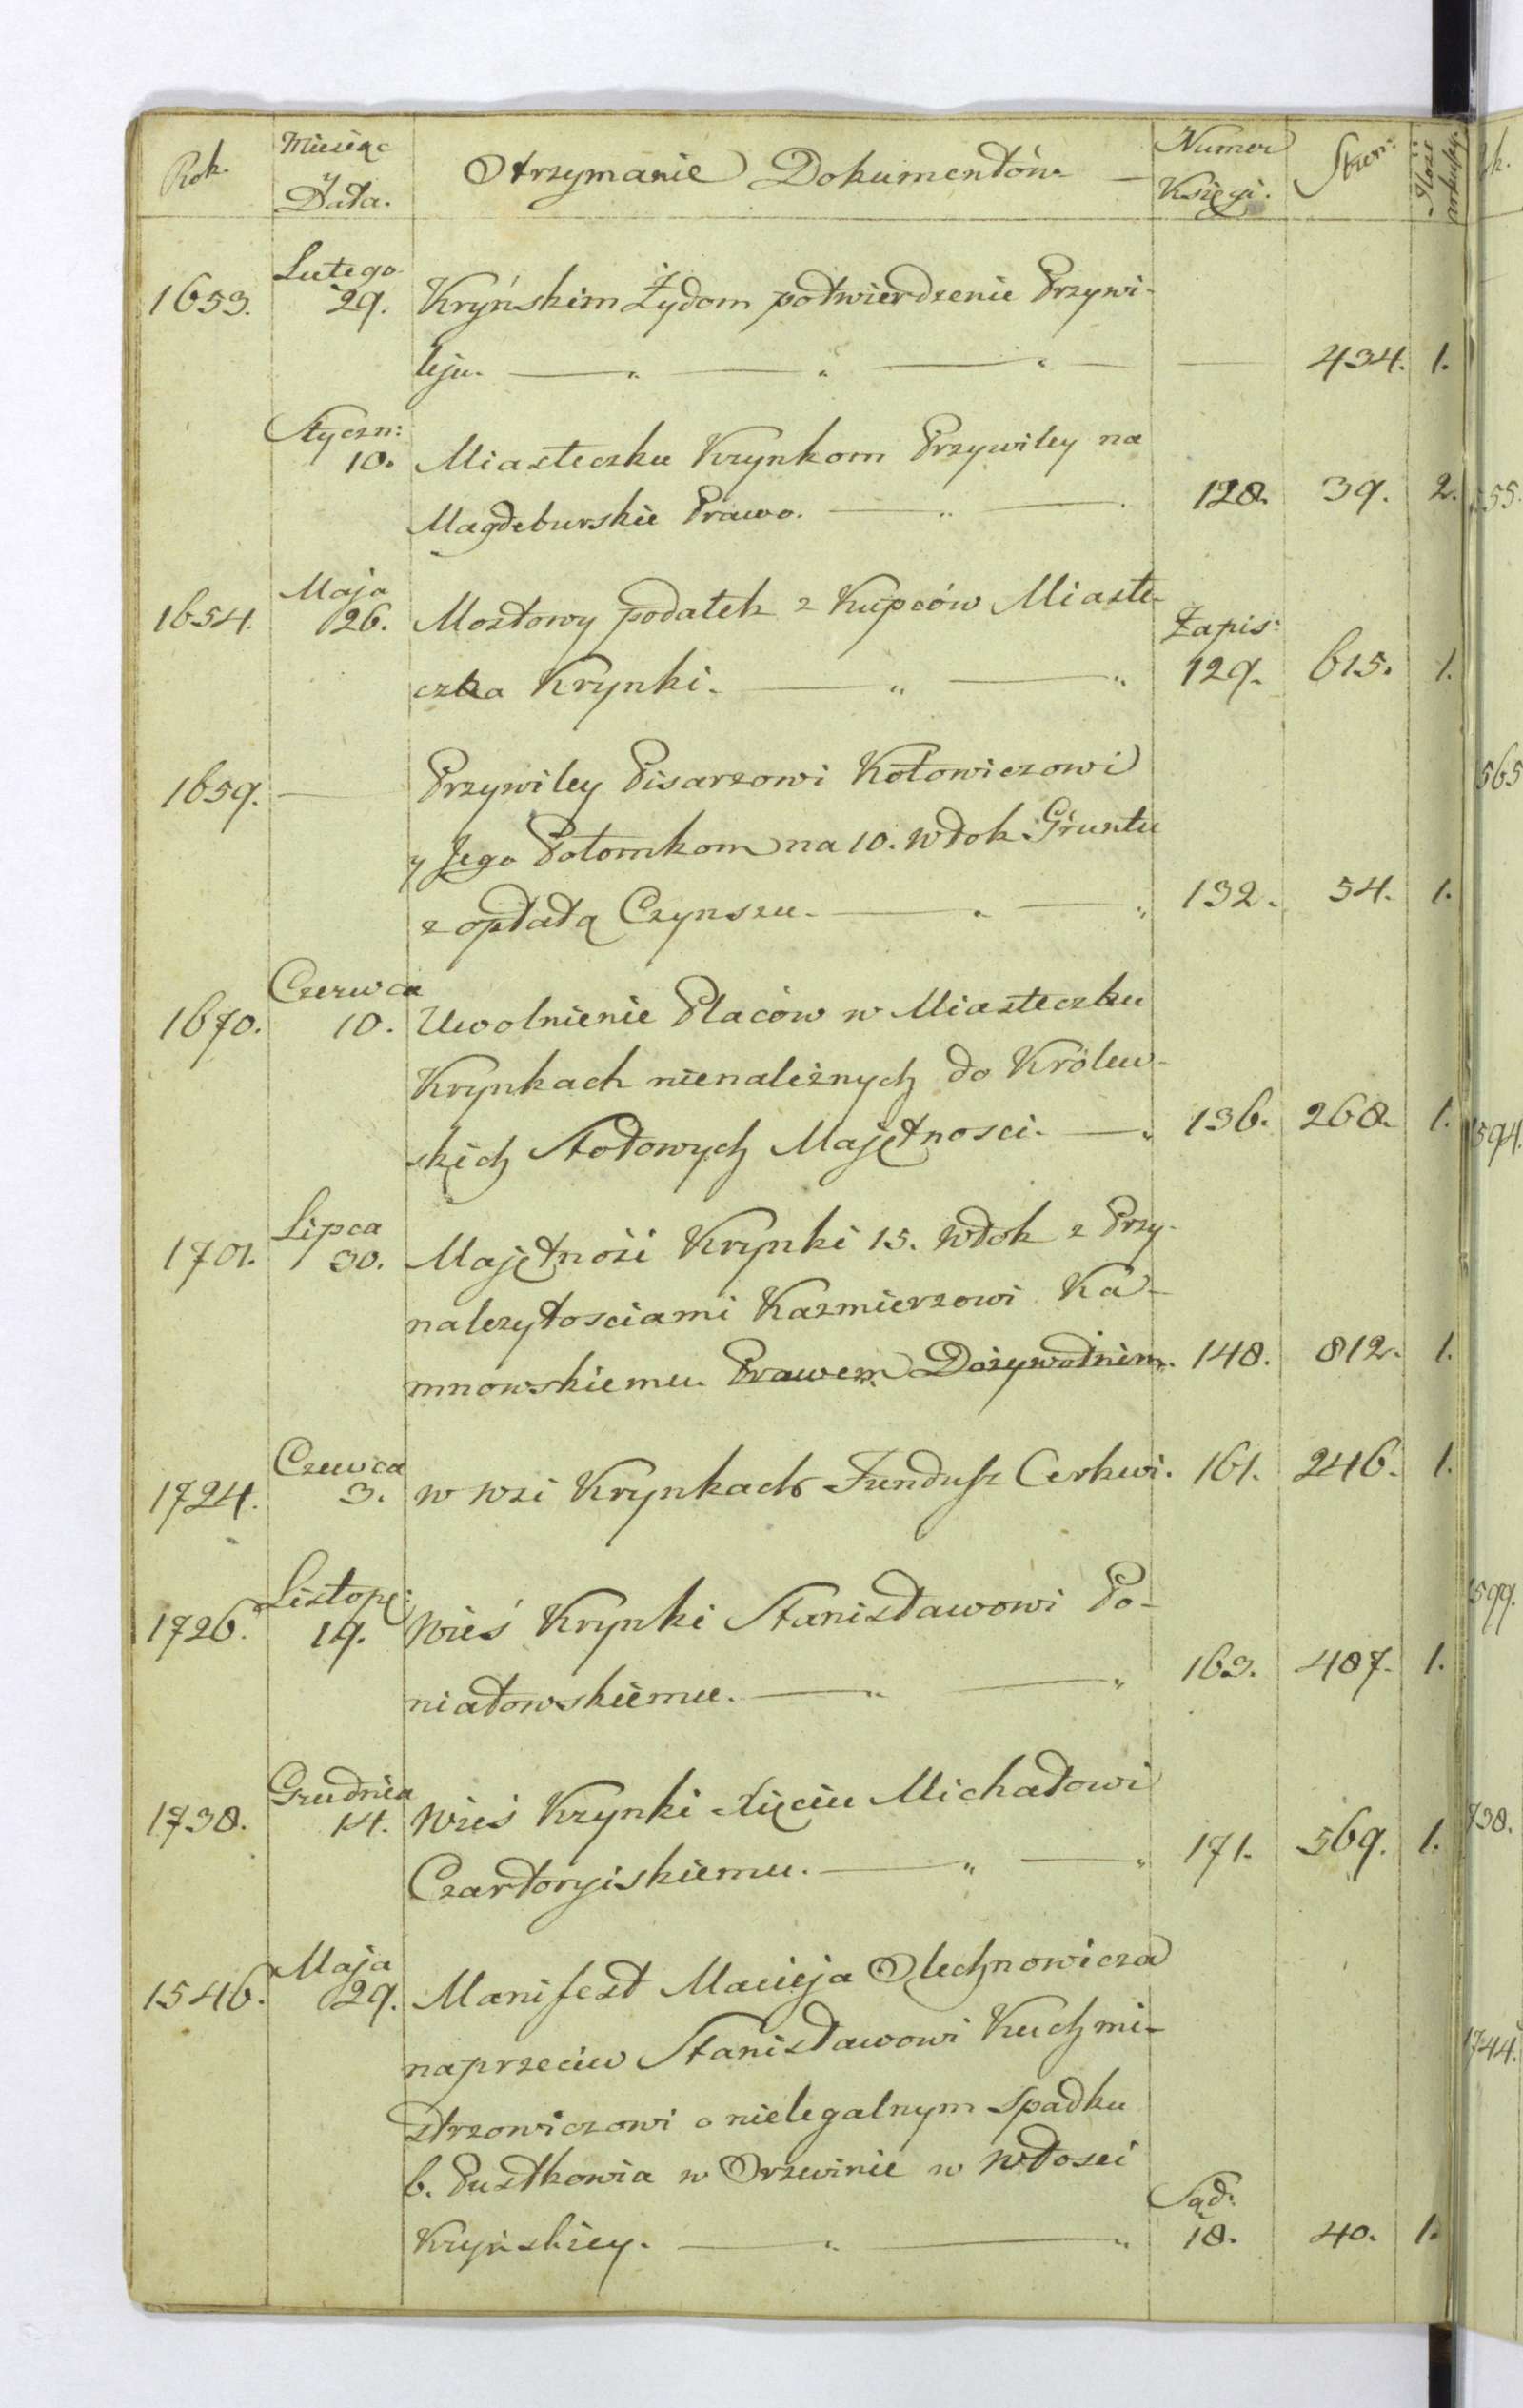 Rok. Miesiąc y Data. Otrzymanie Dokumentów Numer Księgi. Stron: Ilość
1653. Lutego 29. Kryńskim Żydom potwierdzenie Przywi-
leju. 434. 1.
Styczn: 10. Miasteczku Krynkom Przywiley na
Magdeburskie Prawo. 128. 39. 2.
1654. Maja 26. Mostowy podatek z Kupców Miaste-
czka Krynki. Zapis: 129. 615. 1.
1659. Przywiley Pisarzowi Kotowiczowi
y Jego Potomkom na 10. włok Gruntu
z opłatą Czynszu. 132. 54. 1.
1670. Czerwca 10. Uwolnienie Placów w Miasteczku
Krynkach nienależnych do Królew-
skich Stołowych Majętnosci. 136. 268. 1.
1701. Lipca 30. Majętność Krynki 15. włok z Przy-
nalezytosciami Kazmierzowi Ka-
mnowskiemu Prawem Dożywotnim. 148. 812. 1.
1724. Czewca 3. w wsi Krynkach Fundusz Cerkwi. 161. 246. 1.
1726. Listop: 19. Wieś Krynki Stanisławowi Po-
niatowskiemu. 163. 487. 1.
1738. Grudnia 14. Wieś Krynki Xięciu Michałowi
Czartoryiskiemu. 171. 569. 1.
1546. Maja 29. Manifest Macieja Olechnowicza
naprzeciw Stanisławowi Kuchmi-
strzowiczowi o nielegalnym spadku
b. Pustkowia w Orzwinie w włosci
Kryńskiey. Sąd: 18. 40. 1.